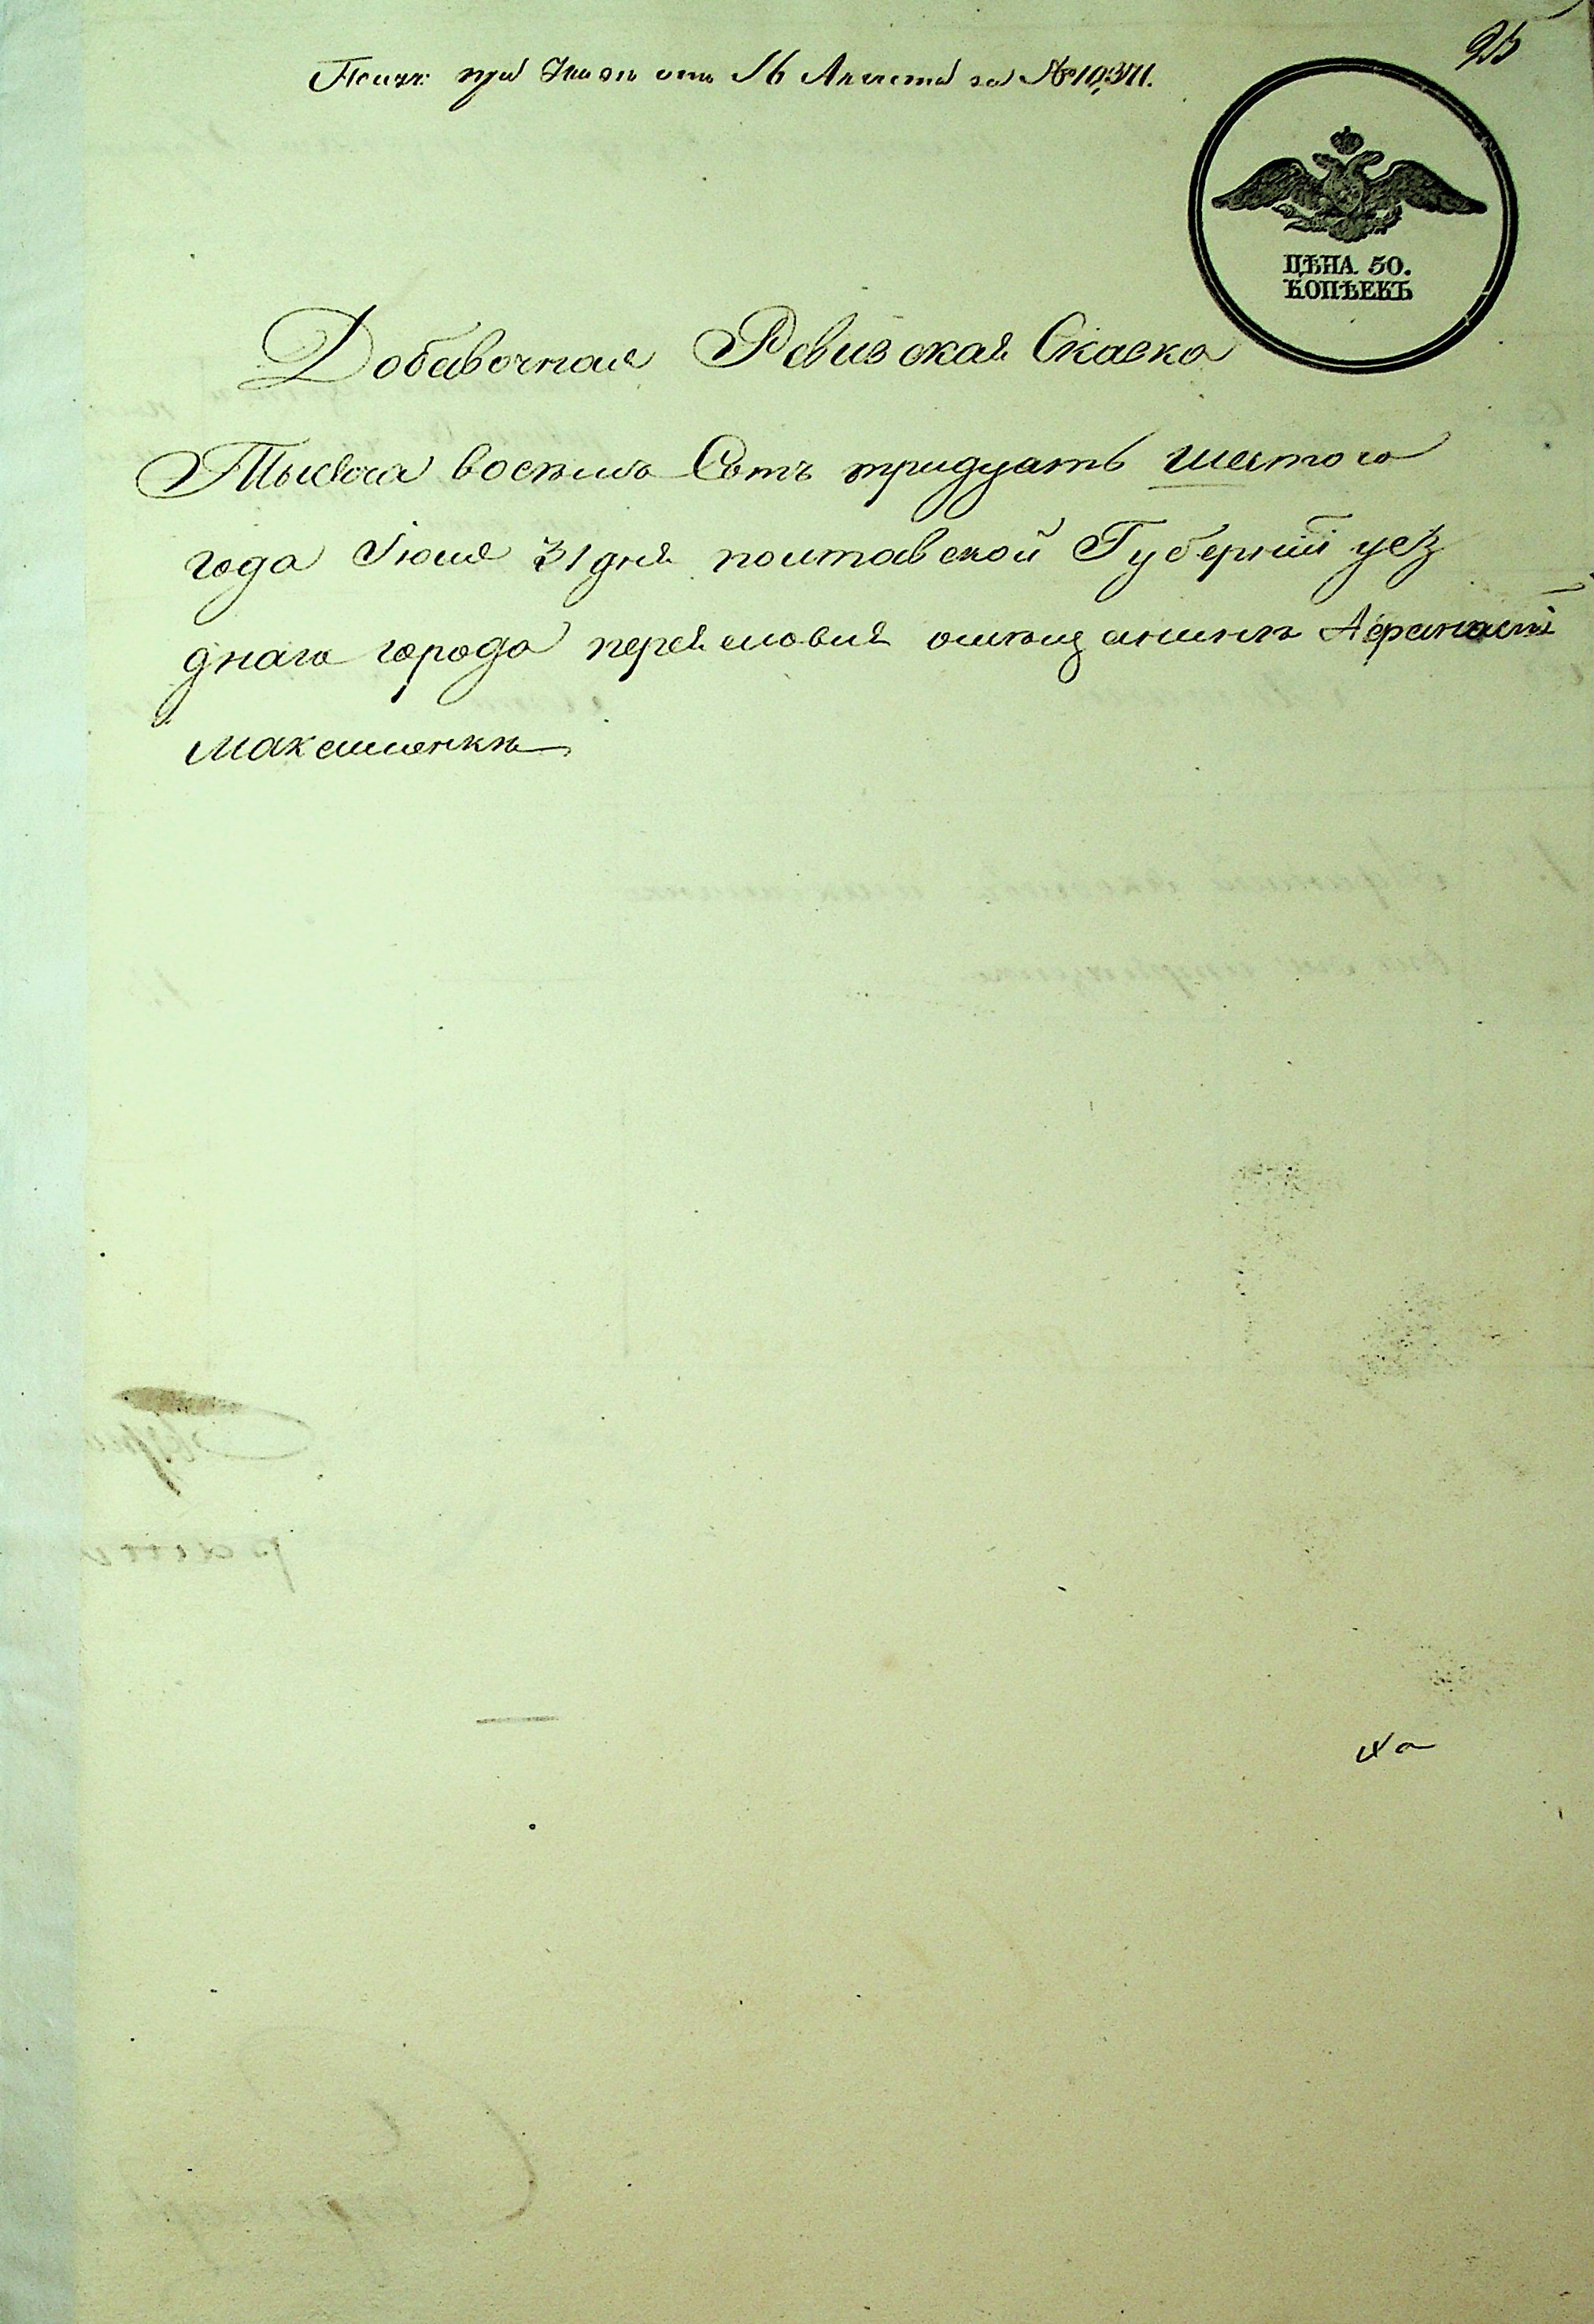 95
Получ: при Указѣ отъ 16 Августа за №10,371.
ЦѢНА 50.
КОПѢЕКЪ
Добавочная Ревизская Скаска
Тысяча восѣмъ Сотъ тридцать шестого
года Іюля 31 дня полтавской Губерніи уез
днаго города переяславля омѣщанинѣ Афанасіѣ
максименкѣ